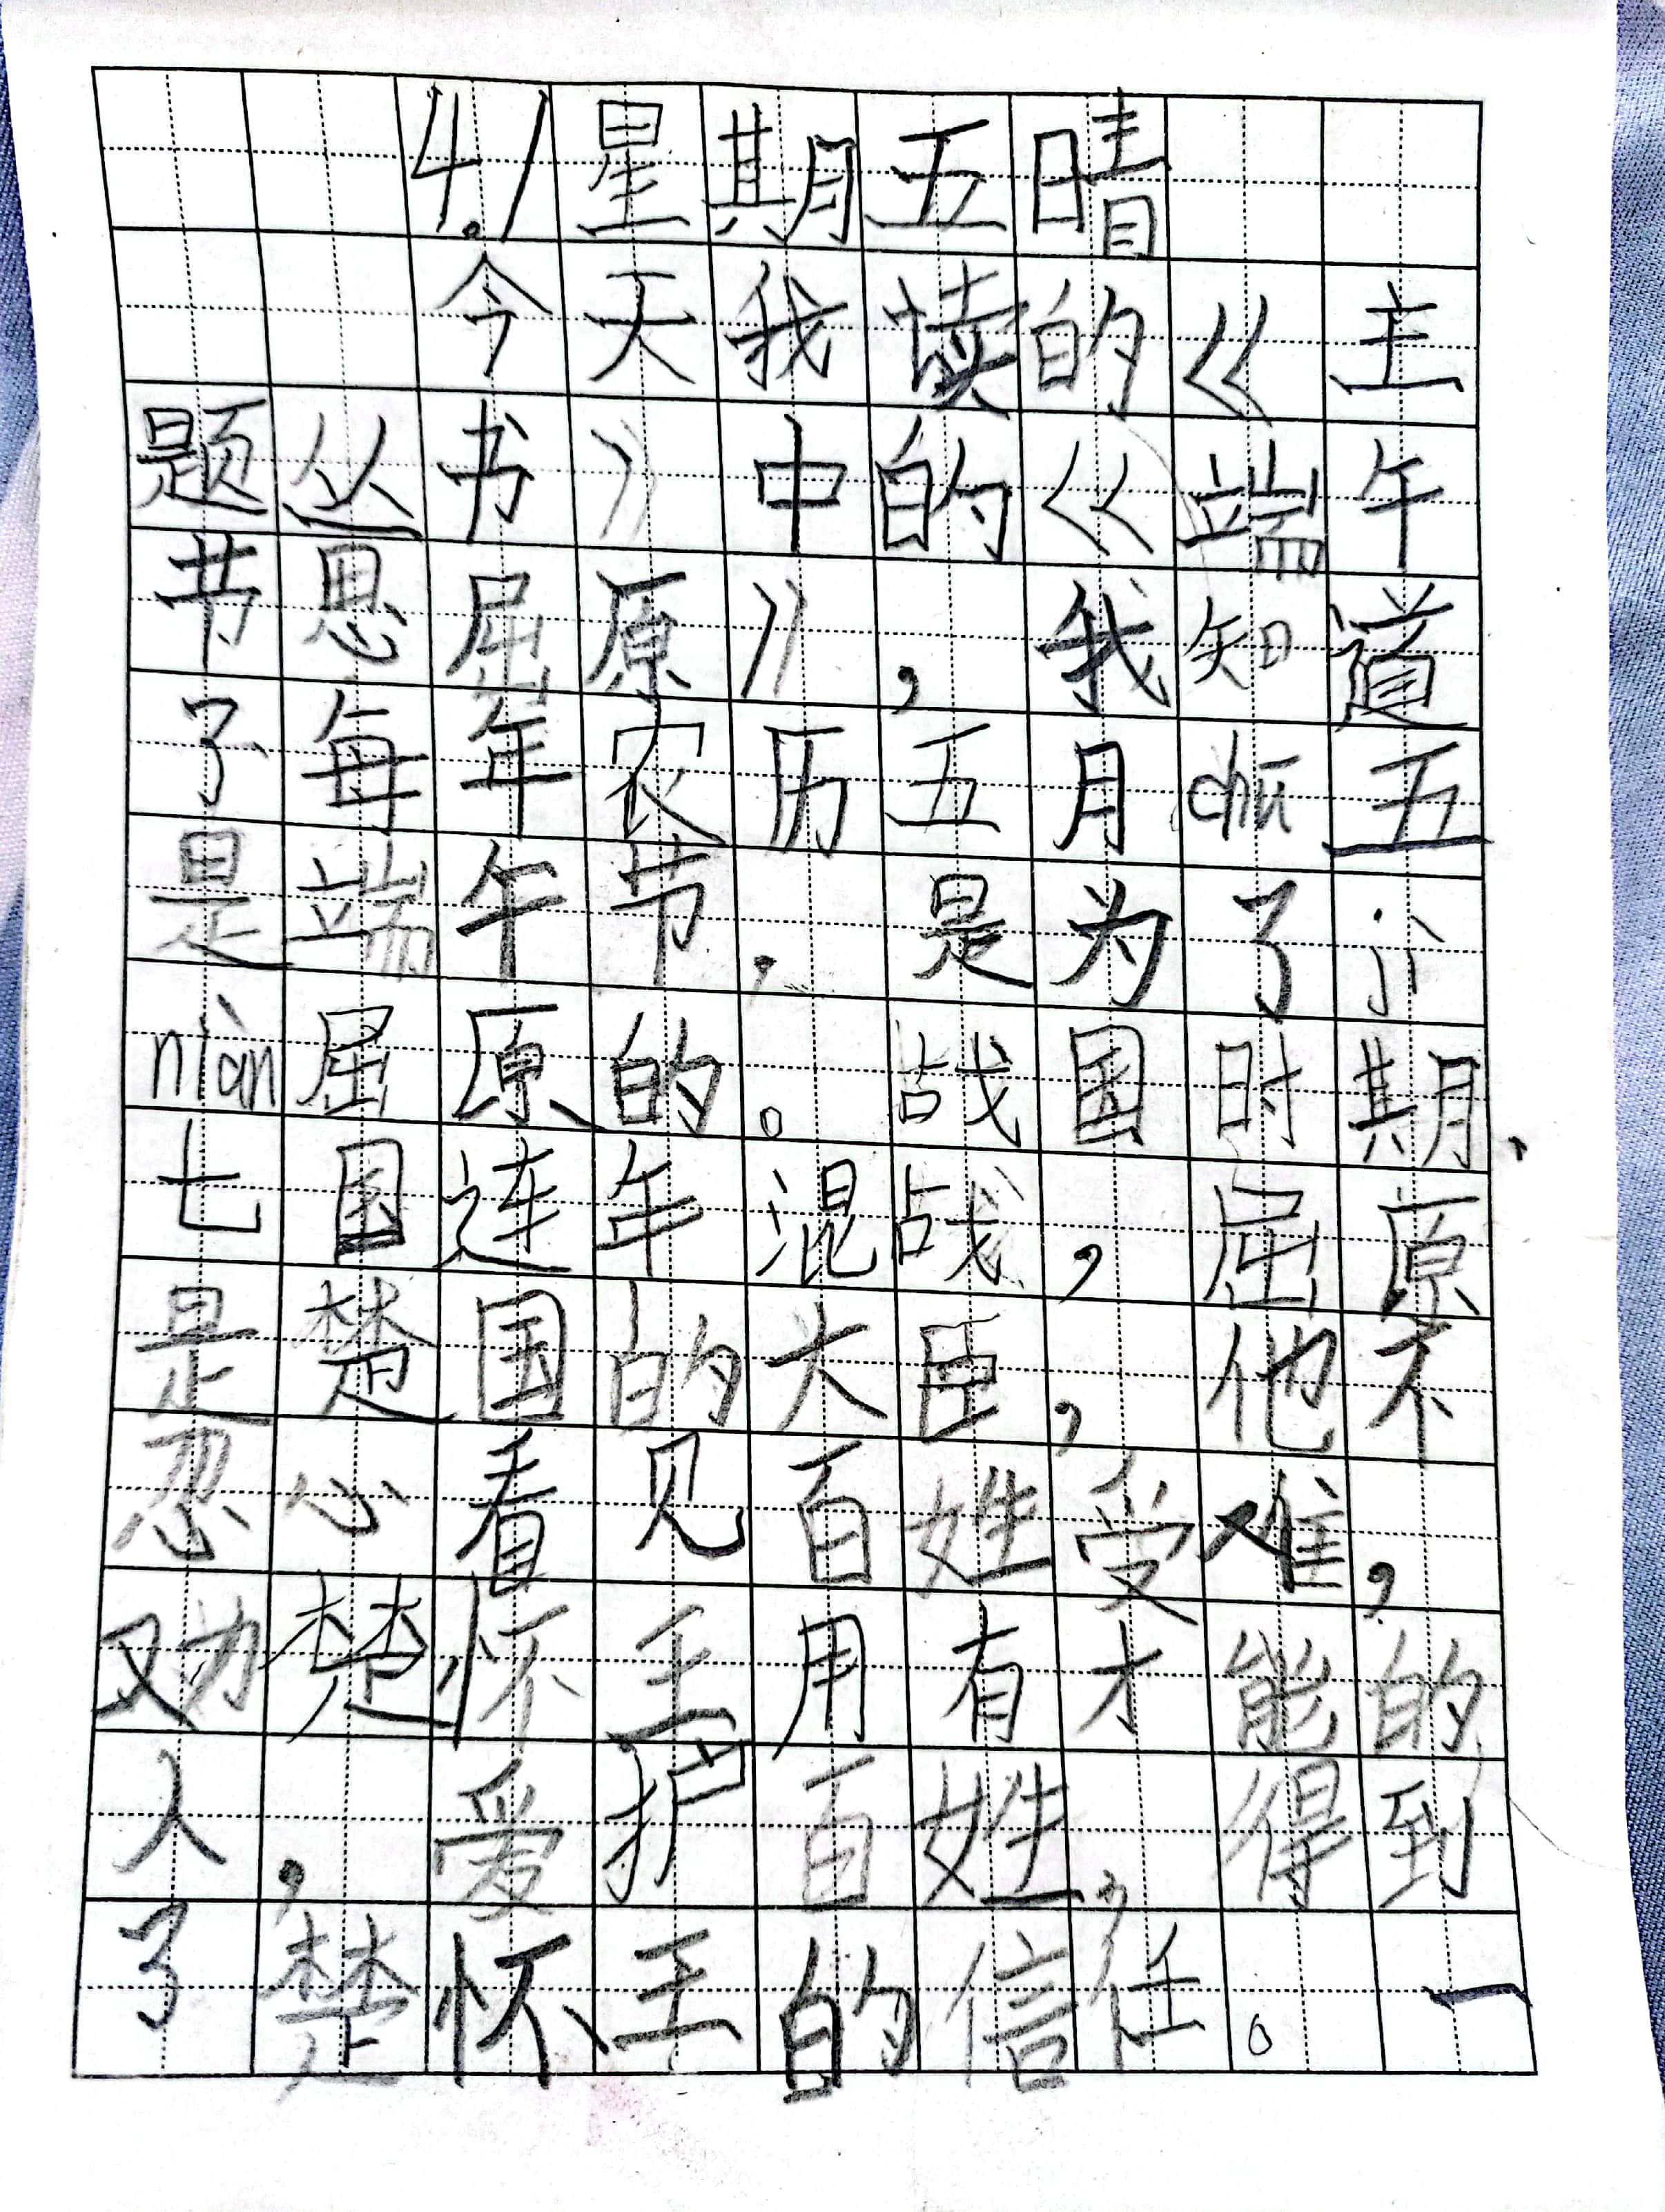 4.1星期五晴
今天我读的《主
题丛书》中的《端午
节思屈原》，我知道
了每年农历五月chū五
是端午节，是为了jì
niàn屈原的。战国时期、
七国连年混战，屈原
是楚国的大臣，他不
忍心看见百姓受难，
劝楚怀王用有才能的
人，爱护百姓，得到
了楚怀王的信任。一